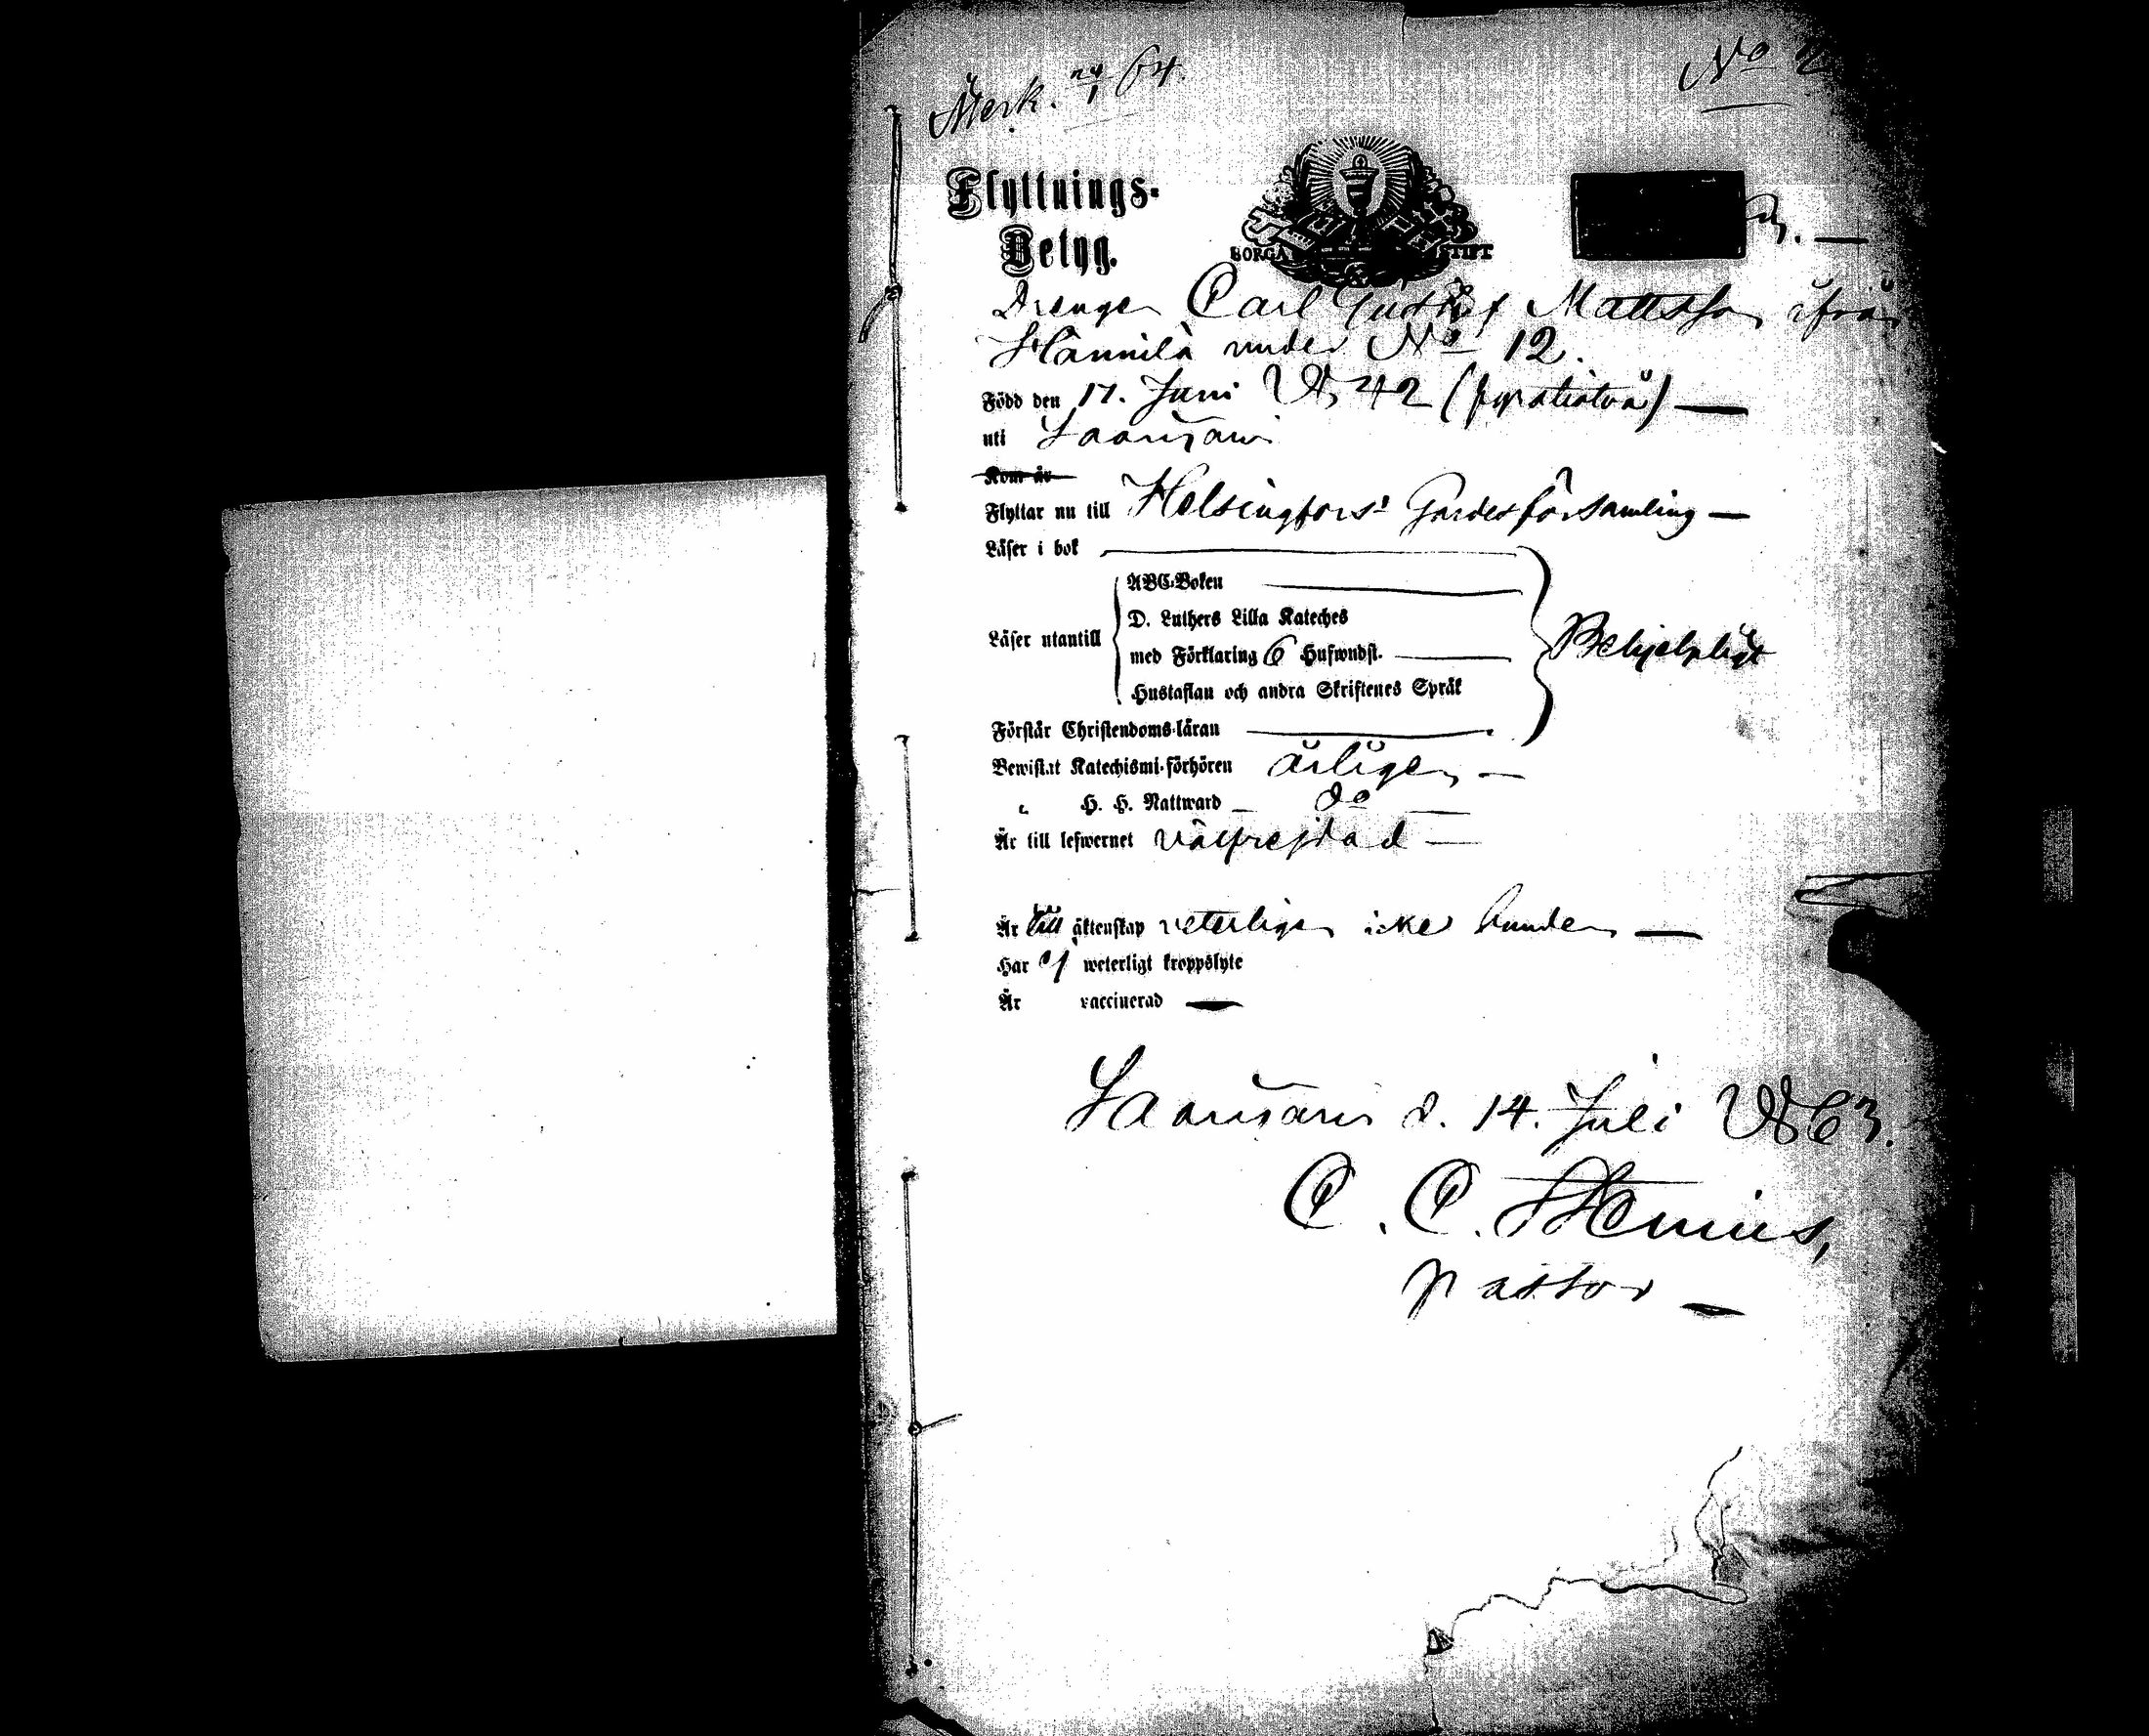 Ankom. 24/1 64.
No
Flyttnings-
Betyg.
BORGÅ STIFT
Drengen Carl Gustaf Mattsson ifrån
Hännilä under No 12.
Född den 17. Juni 1842 (fyratiotvå) —
uti Saarijärvi
Kom år
Flyttar nu till Helsingfors' Gardesförsamling —
Läser i bok
ABC-Boken
D. Luthers Lilla Kateches
Läser utantill
med Förklaring 6 Hufwudst.
Behjelpligt
Hustaflan och andra Skriftenes Språk
Förstår Christendoms-läran
Bewistat Katechismi-förhören årligen —
" H. H. Nattward do
Är till lefwernet välfrejdad —
Är till äktenskap veterligen icke bunden —
Har ej weterligt kroppslyte
Är vaccinerad —
Saarijärvi d. 14. Juli 1863.
C. C. Stenius,
pastor —